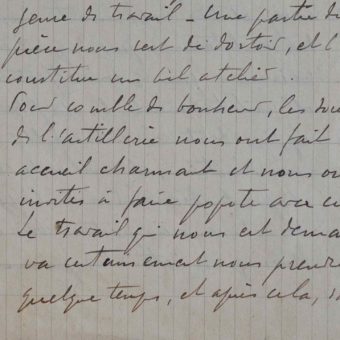 genre de travail – Une partie de
pièce nous sert de dortoir, et l'
constitue un bel atelier.
Pour comble de bonheur, les
de l'artillerie nous ont fait
accueil charmant et nous on
invités à faire popote avec
Le travail qui nous est dema
va certainement nous prendre
quelque temps, et après cela,